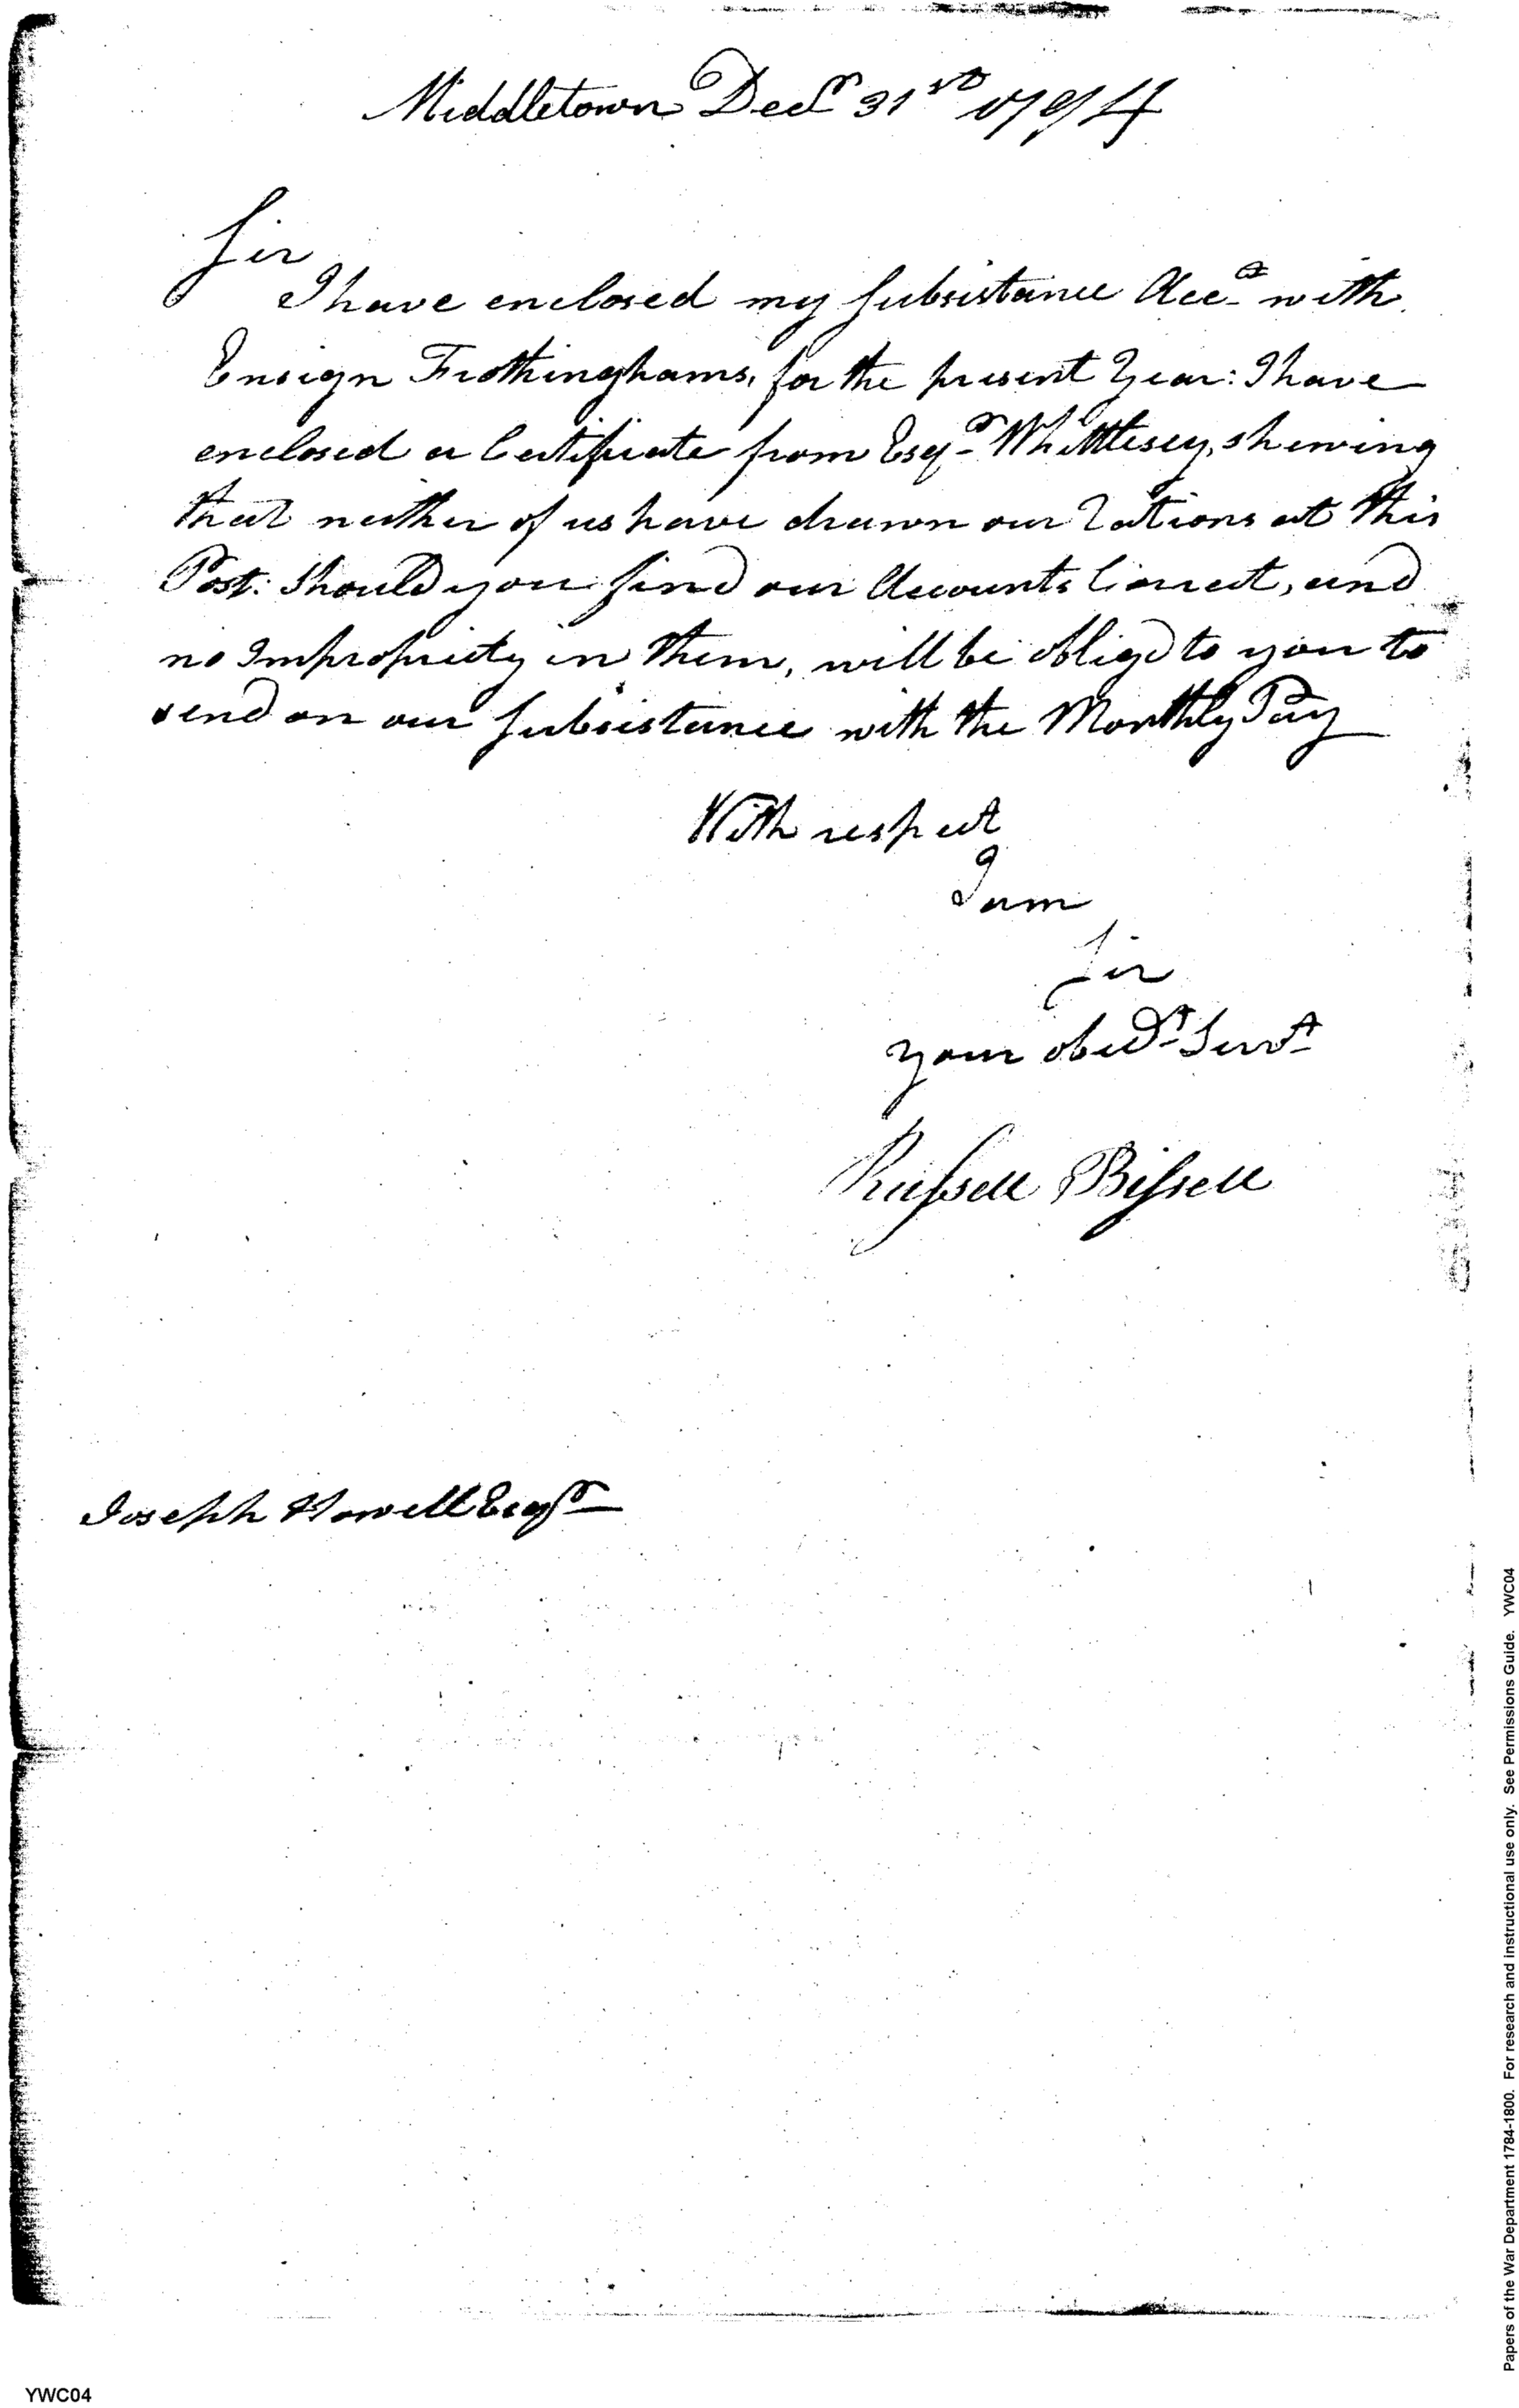 Middletown Decr 31st 1794
Sir
I have enclosed my Subsistance Acct with
Ensign Frothinghams, for the present Year: I have
enclosed a Certificate from Esqr Whittlesey, shewing
that neither of us have drawn our Rations at this
Post: Should you find our Accounts Correct, and
no Impropriety in them, will be obligd to you to
send on our Subsistance with the Monthly Pay
With respect
I am
Sir
your obedt Servt
Russell Bissell
Joseph Howell Esqr
Papers of the War Department 1784-1800. For research and instructional use only. See Permissions Guide. YWC04
YWC04